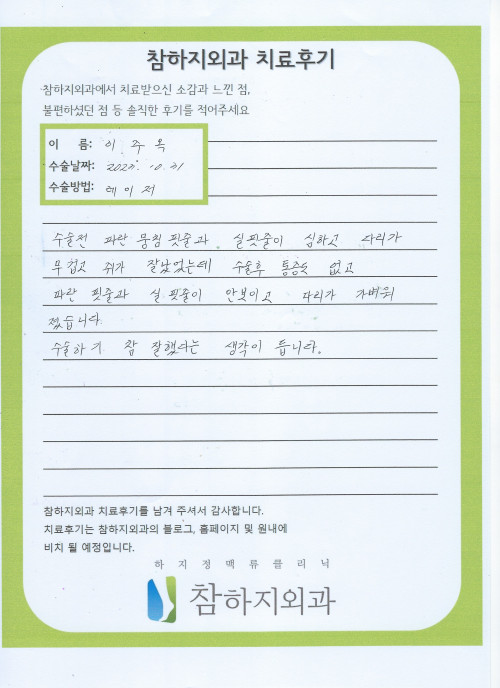 참하지외과 치료후기
참하지외과에서 치료받으신 소감과 느낀 점,
불편하셨던 점 등 솔직한 후기를 적어주세요
이 름: 이 주 옥
수술날짜: 10. 31
수술방법: 레이저
수술전 파란 뭉침 핏줄과 실핏줄이 심하고 다리가
무겁고 쥐가 잘났었는데 수술후 통증도 없고
파란 핏줄과 실핏줄이 안보이고 다리가 가벼워
졌습니다.
수술하기 참 잘했다는 생각이 듭니다.
참하지외과 치료후기를 남겨 주셔서 감사합니다.
치료후기는 참하지외과의 블로그, 홈페이지 및 원내에
비치 될 예정입니다.
하지정맥류클리닉
참하지외과